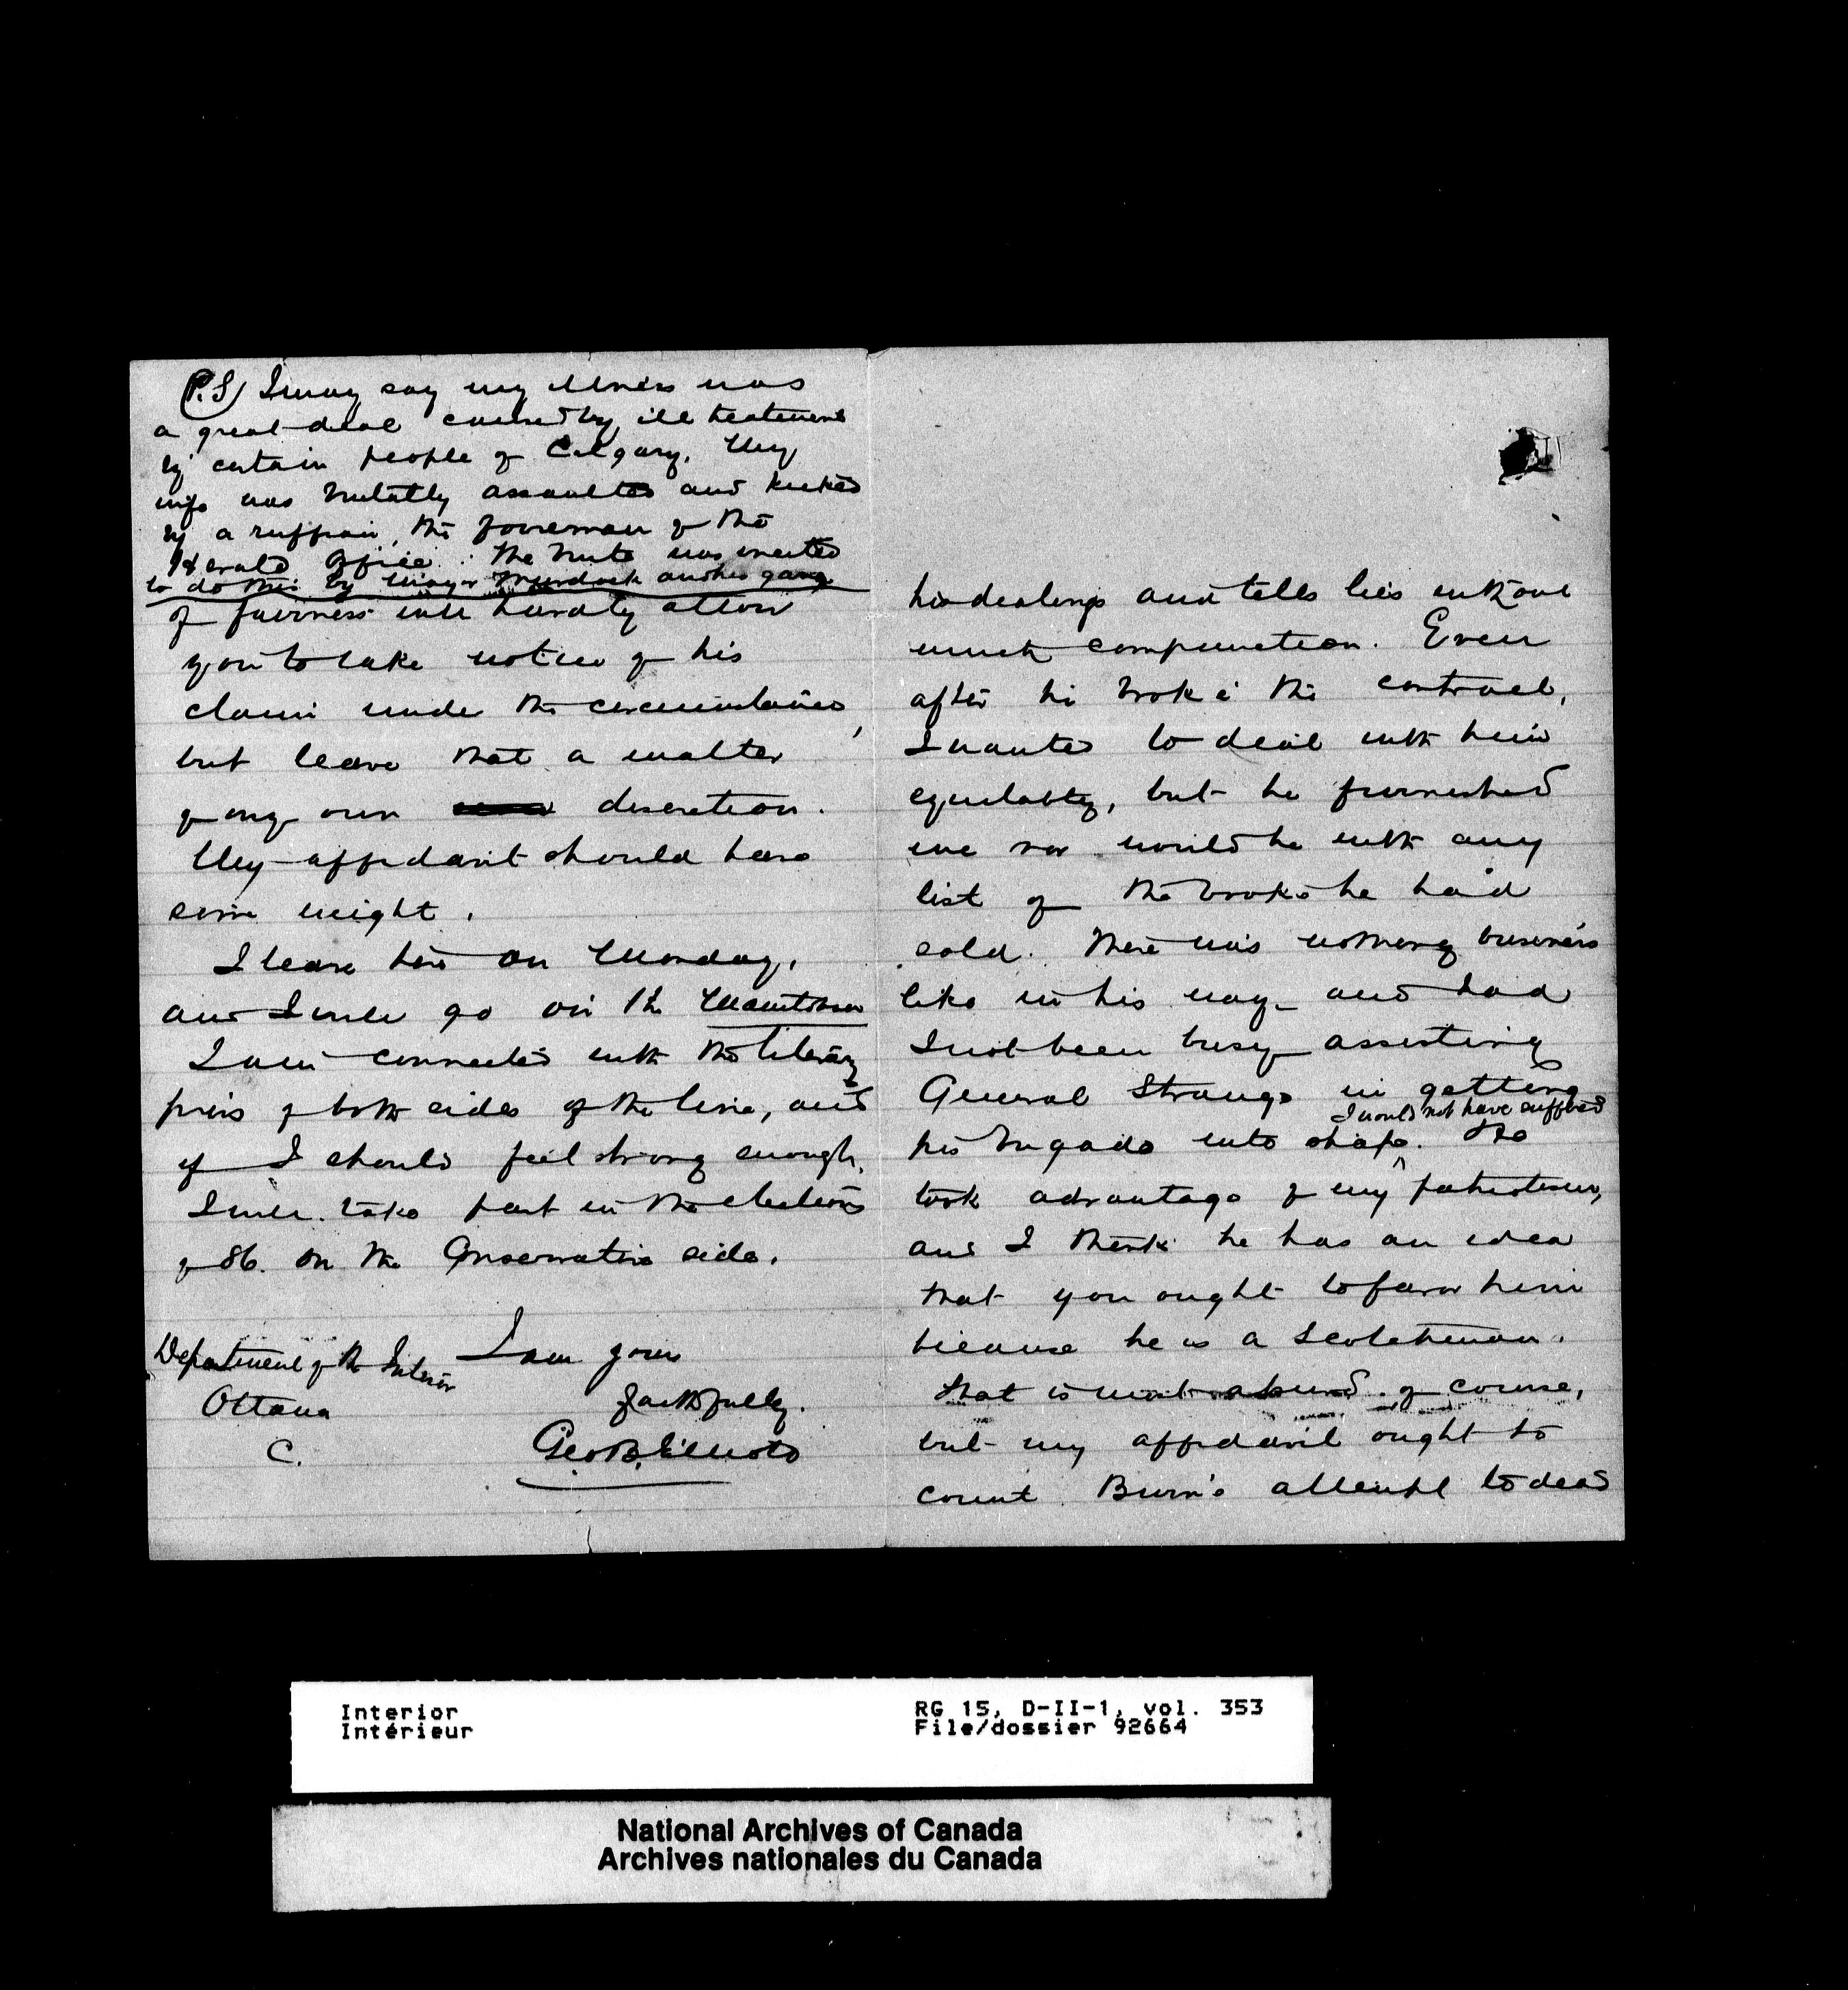 P.S) I may say my illness was
a great deal caused by ill treatment
by certain people of Calgary. My
wife was brutally assaulted and kicked
by a ruffian, the foreman of the
Herald Office. The brute was incited
to do this by Mayor Murdoch and his gang
of fairness will hardly allow
you to take notice of his
claim under the circumstances,
but leave that a matter
of any own discretion.
My affidavit should have
some weight.
I leave here on Monday,
and I will go on the Manitoban
I am connected with the literary
press of both sides of the line, and
if I should feel strong enough,
I will take part in the elections
of 86. on the Conservative side.
I am yours
faithfully.
Geo B. Elliott
Department of the Interior
Ottawa
C.
his dealings and tells lies without
much compunction. Even
after he broke the contract,
I wanted to deal with him
equitably, but he furnished
me nor would he with any
list of the books he had
sold. There was nothing business
like in his way and had
I not been busy assisting
General Strange in getting
I would not have suffered
his brigade into shape. He
took advantage of my patriotism,
and I think he has an idea
that you ought to favor him
because he is a Scotchman.
that is most absurd of course,
but my affidavit ought to
count. Burn's attempt to dead
Interior
Intérieur
RG 15, D-II-1, vol. 353
File/dossier 92664
National Archives of Canada
Archives nationales du Canada